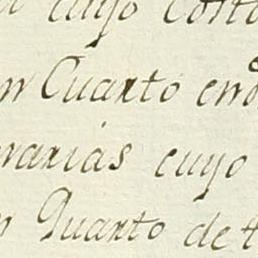 cuyo Costo
en Cuarto en
varias cuyo
Quarto de